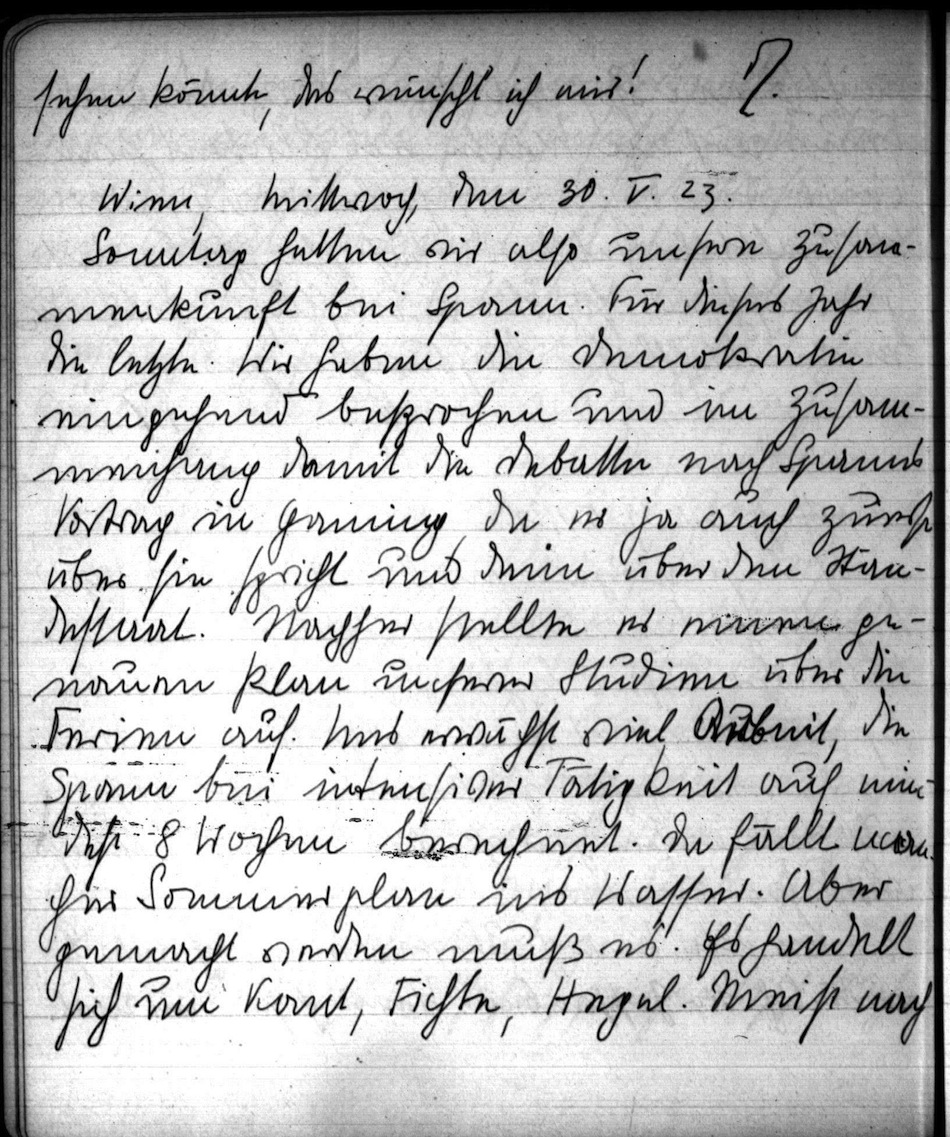 sehen könnte, das wünscht ich mir! 7.
Wien, Mittwoch, den 30. V. 23.
Sonntag hatten wir also unsere Zusam-
menkunft bei Spann. Für dieses Jahr
die letzte. Wir haben die Demokratie
eingehend besprochen und im Zusam-
menhang damit die Debatte nach Spanns
Vortrag in Gaming, da er ja auch zuerst
über sie spricht und dann über den Stän-
destaat. Nachher stellte er einen ge-
nauen Plan unserer Studien über die
Ferien auf. Uns erwächst viel Arbeit, die
Spann bei intensiver Tätigkeit auf min-
dest 8 Wochen berechnet. Da fällt man-
cher Sommerplan ins Wasser. Aber
gemacht werden muß es. Es handelt
sich um Kant, Fichte, Hegel. Meist nach